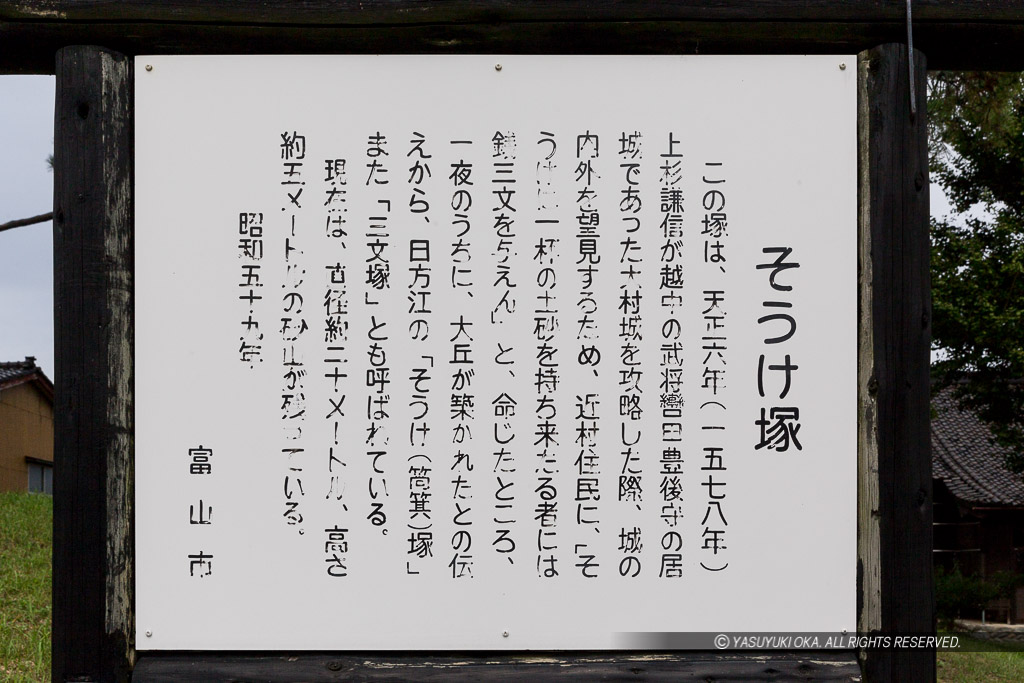 そうけ塚
この塚は、天正六年(一五七八年)
上杉謙信が越中の武将轡田豊後守の居
城であった大村城を攻略した際、城の
内外を望見するため、近村住民に、「そ
うけに一杯の土砂を持ち来たる者には
銭三文を与えん」と、命じたところ、
一夜のうちに、大丘が築かれたとの伝
えから、日方江の「そうけ(筒箕)塚」
また「三文塚」とも呼ばれている。
現在は、直径約二十メートル、高さ
約五メートルの砂山が残っている。
昭和五十九年
富山市
© YASUYUKI OKA. ALL RIGHTS RESERVED.